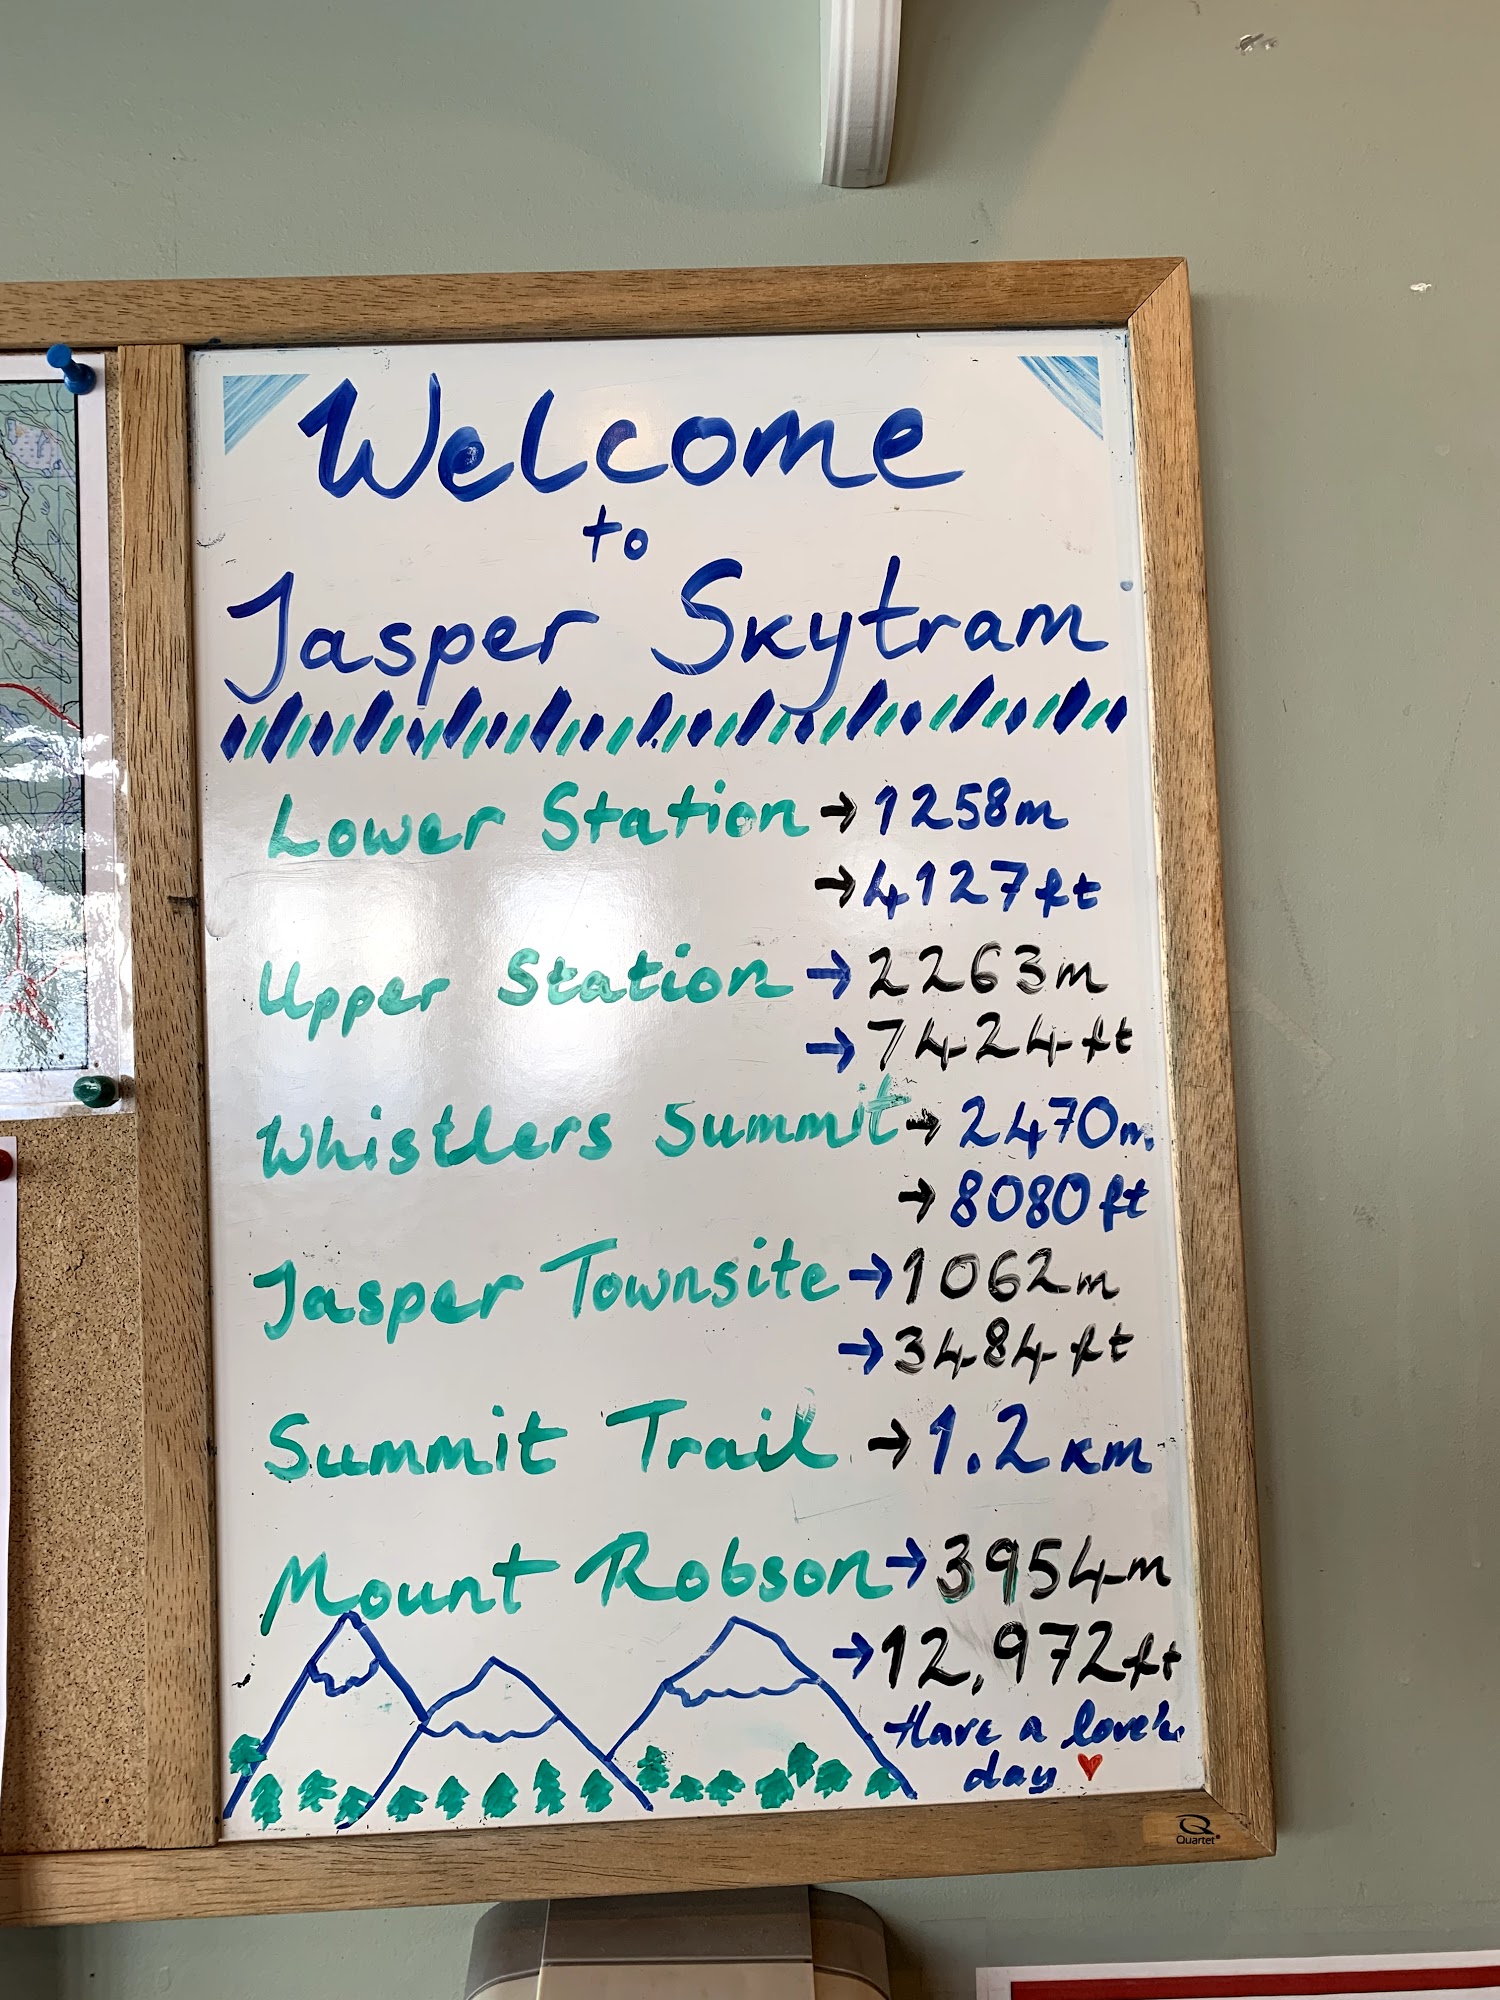 Welcome
to
Jasper Skytram
Lower Station → 1258m
→ 4127ft
Upper Station → 2263m
→ 7424ft
Whistlers Summit → 2470m
→ 8080ft
Jasper Townsite → 1062m
→ 3484ft
Summit Trail → 1.2km
Mount Robson → 3954m
→ 12,972ft
Have a lovely
day ♥
Quartet